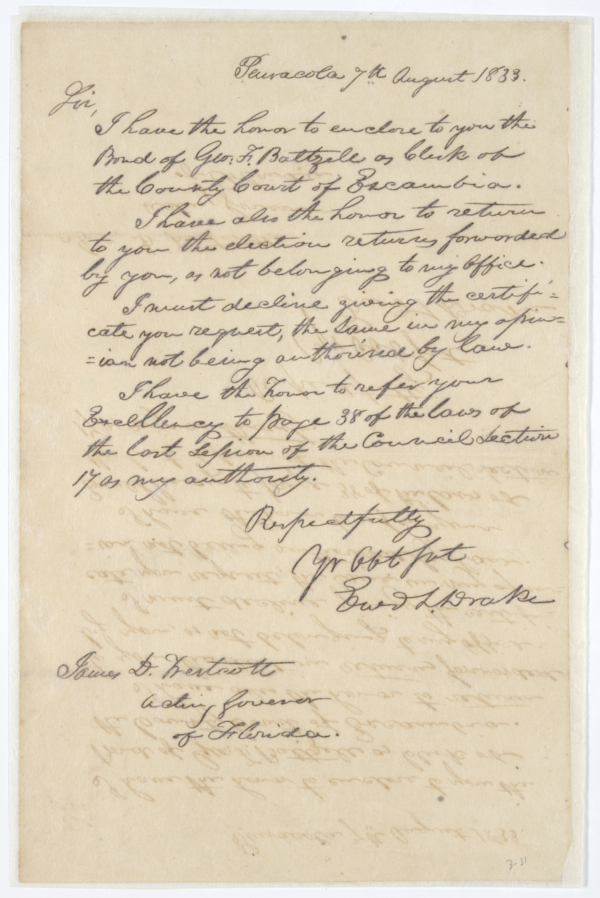 Pensacola 7th August 1833.
Sir,
I have the honor to enclose to you the
Bond of Geo: F. Baltzell as Clerk of
the County Court of Escambia.
I have also the honor to return
to you the election returns forwarded
by you, as not belonging to my office.
I must decline giving the certifi=
cate you request, the same in my opin=
=ion not being authorised by law.
I have the honor to refer your
Excellency to page 38 of the laws of
the last Session of the Council Section
17 as my authority.
Respectfully
Yr Obt Svt
Ewd L. Drake
James D. Westcott
Acting Govenor
of Florida.
3-31